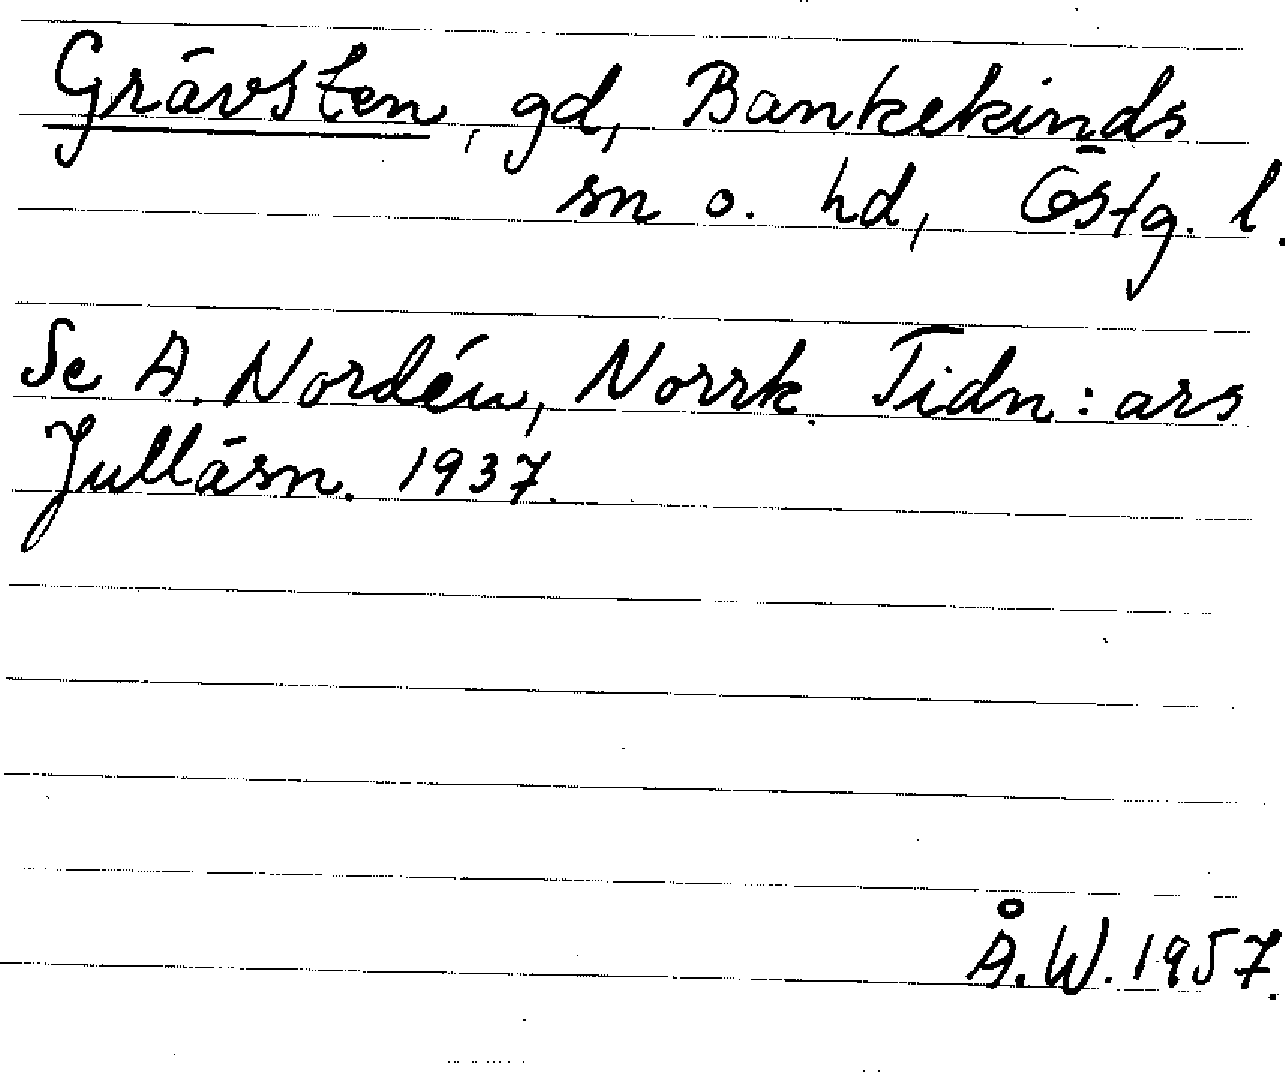 Grävsten, gd, Bankekinds
sn o. hd, Östg. l.
Se A. Nordén, Norrk. Tidn:ars
Julläsn. 1937.
Å.W. 1957.